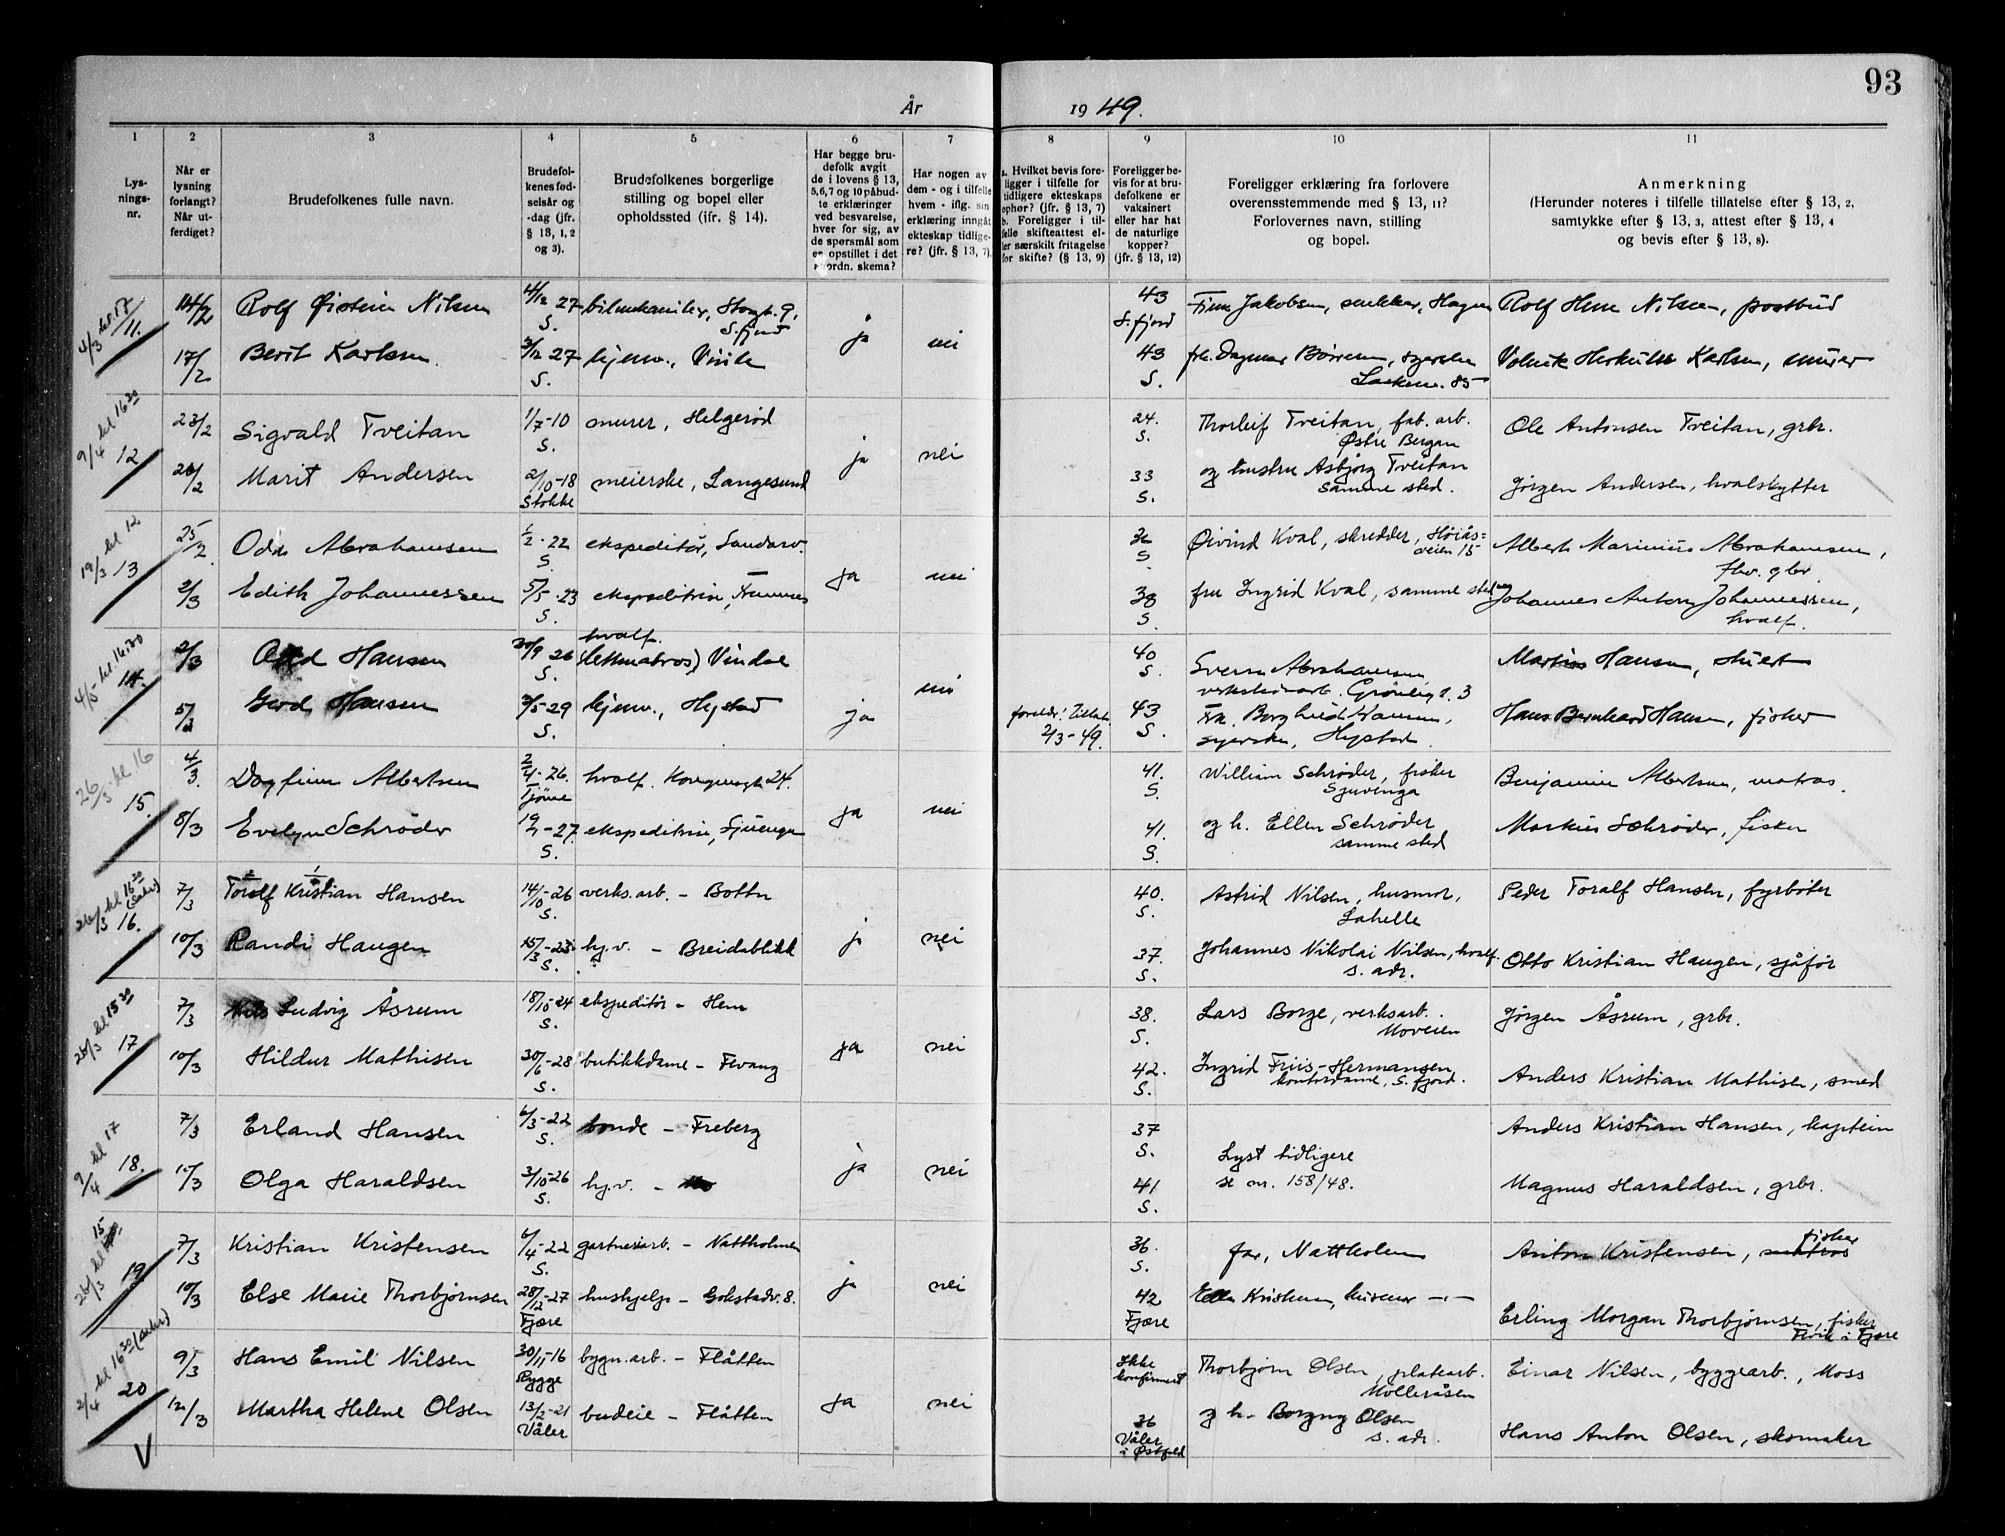 93
År 1949.
1 2 3 4 5 6 7 8 9 10 11
Lys-
nings-
nr.
Når er
lysning
forlangt?
Når ut-
ferdiget?
Brudefolkenes fulle navn.
Brudefol-
kenes fød-
selsår og
-dag (jfr.
§ 13, 1, 2
og 3).
Brudefolkenes borgerlige
stilling og bopel eller
opholdssted (jfr. § 14).
Har begge bru-
defolk avgit
de i lovens § 13,
5, 6, 7 og 10 påbud-
te erklæringer
ved besvarelse,
hver for sig, av
de spørsmål som
er opstillet i det
forordn. skema?
Har nogen av
dem - og i tilfelle
hvem - iflg. sin
erklæring inngåt
ekteskap tidlige-
re? (jfr. § 13, 7).
a. Hvilket bevis fore-
ligger i tilfelle for
tidligere ekteskaps
ophør? (jfr. § 13, 7)
b. Foreligger i til-
felle skifteattest el-
ler særskilt fritagelse
for skifte? (§ 13, 9)
Foreligger be-
vis for at bru-
defolkene er
vaksinert
eller har hat
de naturlige
kopper?
(jfr. § 13, 12)
Foreligger erklæring fra forlovere
overensstemmende med § 13, 11?
Forlovernes navn, stilling
og bopel.
Anmerkning
(Herunder noteres i tilfelle tillatelse efter § 13, 2,
samtykke efter § 13, 3, attest efter § 13, 4
og bevis efter § 13, 8).
4/3 kl. 17
11. 14/2 Rolf Øistein Nilsen 4/12 27 S. bilmekaniker, Storgt. 9, S.fjord ja nei 43 S.fjord Finn Jakobsen, snekker, Hagen Rolf Hem Nilsen, postbud
17/2 Berit Karlsen 3/12 27 S. hjemv., Virik 43 S. frk. Dagmar Børresen, syerske 85 Karlsen, murer
9/4 kl 16 30
12 23/2 Sigvald Tveitan 1/7-10 S. murer, Helgerød ja nei 24. S. Thorleif Tveitan, fab. arb. Østre Bergan Ole Antonsen Tveitan, grbr.
26/2 Marit Andersen 2/10-18 Stokke meierske, Langesund 33 S. og hustru Asbjørg Tveitan samme sted. Jørgen Andersen, hvalskytter
19/3 kl 12
13 25/2 Odd Abrahamsen 1/2-22 S. ekspeditør, Sandarv. ja nei 36 S Øivind Kval, skredder, Høiås=veien 15 Albert Marinius Abrahamsen, fhv. gbr.
2/3 Edith Johannessen 5/5-23 S. ekspeditrise, Framnes 38 S. fru Ingrid Kval, samme sted Johannes Anton Johannessen, hvalf.
4/5 kl 16.30
14. 2/3 Hansen 30/9 26 S. hvalf. (lettmatros) Vindal ja nei 40 S. Sverre Abrahamsen verkstedarb. Grønligt. 3 Martin Hansen, stuert
5/3 Gerd Hansen 3/5-29 S. hjemv., Hystad foreldr. tillat. 2/3-49. 43 S. Frk. Borghild Hansen, syerske, Hystad. Hans Bernhard Hansen, fisker
26/3 kl 16
15. 4/3. Dagfinn Albertsen 2/4-26. Tjøme hvalf. Kongensgt 24. ja nei 41. S. William Schrøder, fisker Sjuvenga Benjamin Albertsen, matros.
8/3 Evelyn Schrøder 19/1-27. S. ekspeditrise, Sjuenga 41. S. og h. Ellen Schrøder samme sted Markus Schrøder, fisker
26/3 kl 16 30
16. 7/3 Toralf Kristian Hansen 14/10-26 S. verks.arb. - Botten ja nei 40. S. Astrid Nilsen, husmor, Lahelle Peder Toralf Hansen, fyrbøter
10/3 Randi Haugen 15/3-25 S. hj.v. - Breidablikk 37. S. Johannes Nikolai Nilsen, hvalf. s. adr. Otto Kristian Haugen, sjåfør
26/3 kl 15 30
17 7/3 Nils Ludvig Åsrum 18/10-24 S. ekspeditør - Hem ja nei 38. S. Lars Borge, verksarb. Moveien Jørgen Åsrum, grbr.
10/3 Hildur Mathisen 30/6-28 S. butikkdame - Fevang 42. S. Ingrid Friis-Hermansen kontordame, S.fjord. Anders Kristian Mathisen, smed
9/4 kl 17
18. 7/3 Erland Hansen 6/3-22 S. bonde - Freberg ja nei 37 S. Lyst tidligere Anders Kristian Hansen, kaptein
10/3 Olga Haraldsen 3/10-26 S. hj.v. - Mo 41 S. se nr. 158/48. Magnus Haraldsen, grbr.
26/3 kl 15
19 7/3 Kristian Kristensen 6/4-22 S. gartneriarb. - Nattholmen ja nei 36. S. far, Nattholmen Anton Kristensen, matros fisker
10/3 Else Marie Thorbjørnsen 28/12-27 Fjære hushjelp - Gokstadv. 8. 42 Fjære Ellen Kristensen, husmor -"- Erling Morgan Thorbjørnsen, fisker i Fjære
2/4 kl 16 30
20 9/3 Hans Emil Nilsen 30/11-16 Rygge bygn.arb. - Flåtten ja nei Ikke konfirmert Thorbjørn Olsen, platearb. Mølleråsen Einar Nilsen, byggearb., Moss
12/3 Martha Helene Olsen 13/2-21 Våler budeie - Flåtten 36 Våler i Østfold og h. Borgny Olsen s. adr. Hans Anton Olsen, skomaker
V